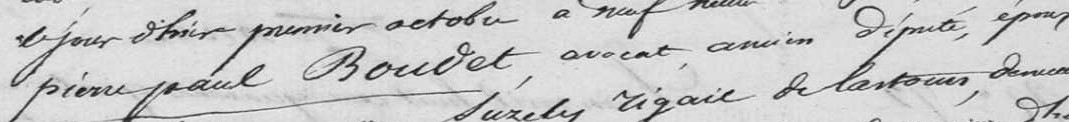 jour d'hier premier octobre a neuf heure
pierre paul Boudet, avocat, ancien député, époux
Suzely Rigail de Lastours, demeu